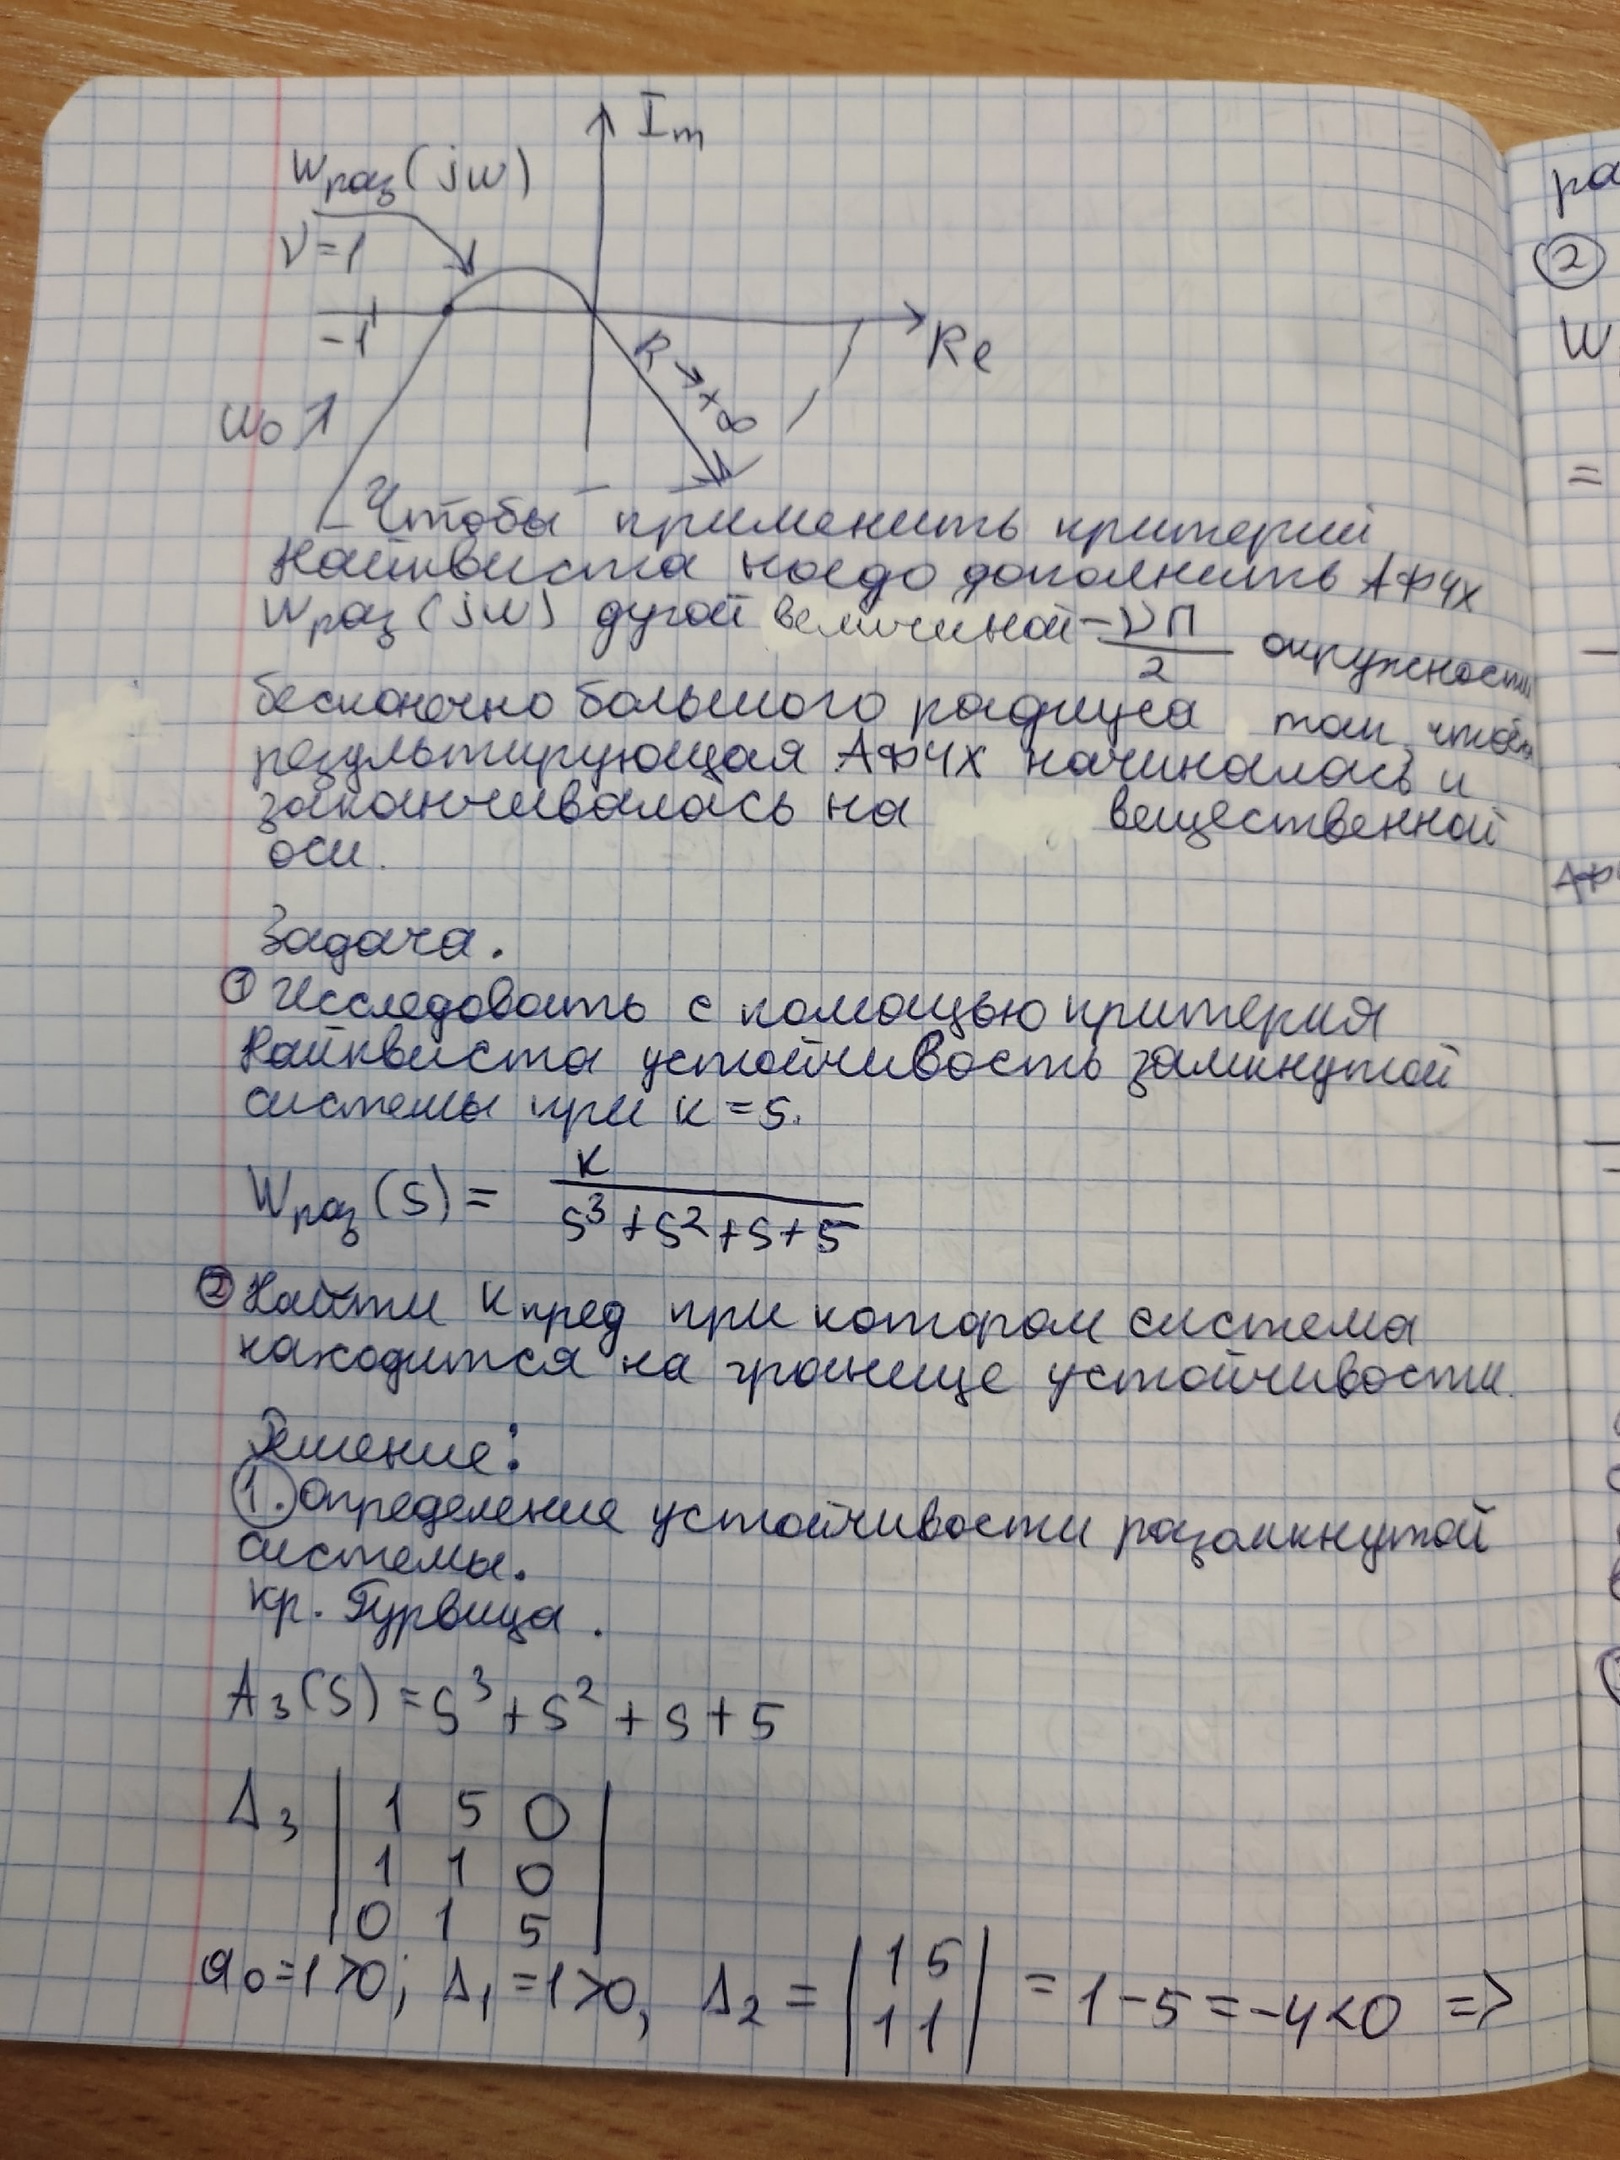 Im
Wраз(jw)
ν=1
-1
Re
R→+∞
w₀↑
Чтобы применить критерий
Найквиста надо дополнить АФЧХ
Wраз(jw) дугой величиной -νπ/2 окружности
бесконечно большого радиуса так, чтобы
результирующая АФЧХ начиналась и
заканчивалась на вещественной
оси.
Задача.
① Исследовать с помощью критерия
Найквиста устойчивость замкнутой
системы при к=5.
Wраз(s) = к/(s³+s²+s+5)
② Найти Кпред при котором система
находится на границе устойчивости.
Решение:
1. Определение устойчивости разомкнутой
системы.
кр. Гурвица.
A₃(s)=s³+s²+s+5
Δ₃ | 1 5 0 |
| 1 1 0 |
| 0 1 5 |
a₀=1>0; Δ₁=1>0, Δ₂ = |1 5; 1 1| = 1-5=-4<0 =>
ра
②
W
=
АФ